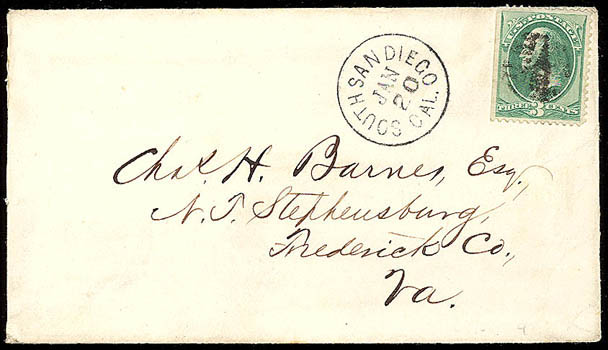 SOUTH SAN DIEGO CAL.
JAN
20
U.S. POSTAGE
THREE 3 CENTS
Chas. H. Barnes, Esq.,
N. T. Stephensburg,
Frederick Co.,
Va.